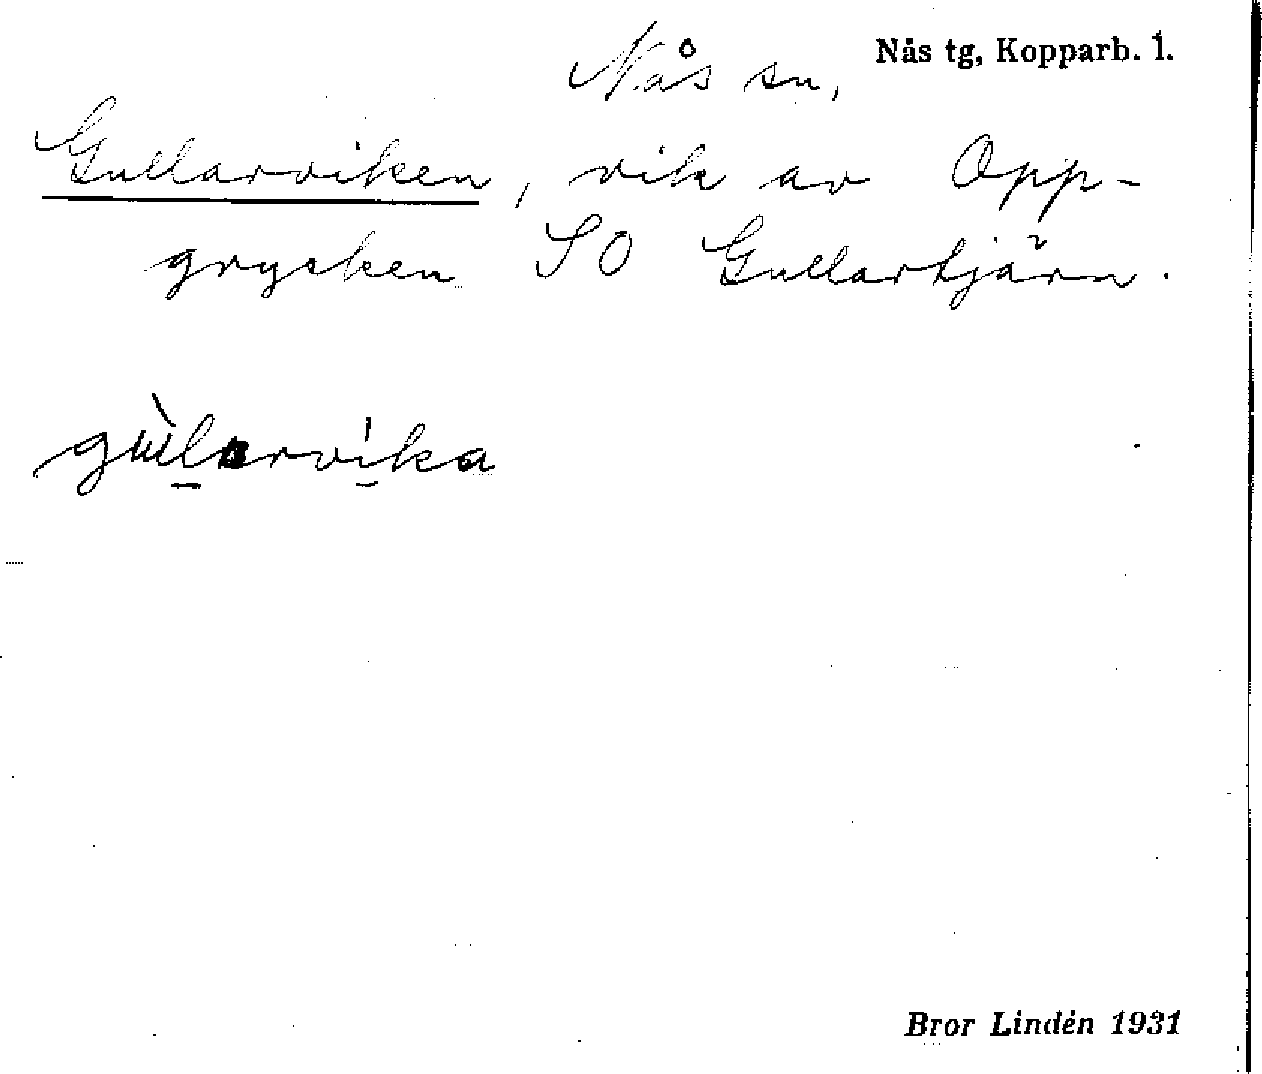 Nås tg, Kopparb. l.
Nås sn,
Gullarviken, vik av Opp-
grycken SO Gullartjärn.
gùlarvika
Bror Lindén 1931